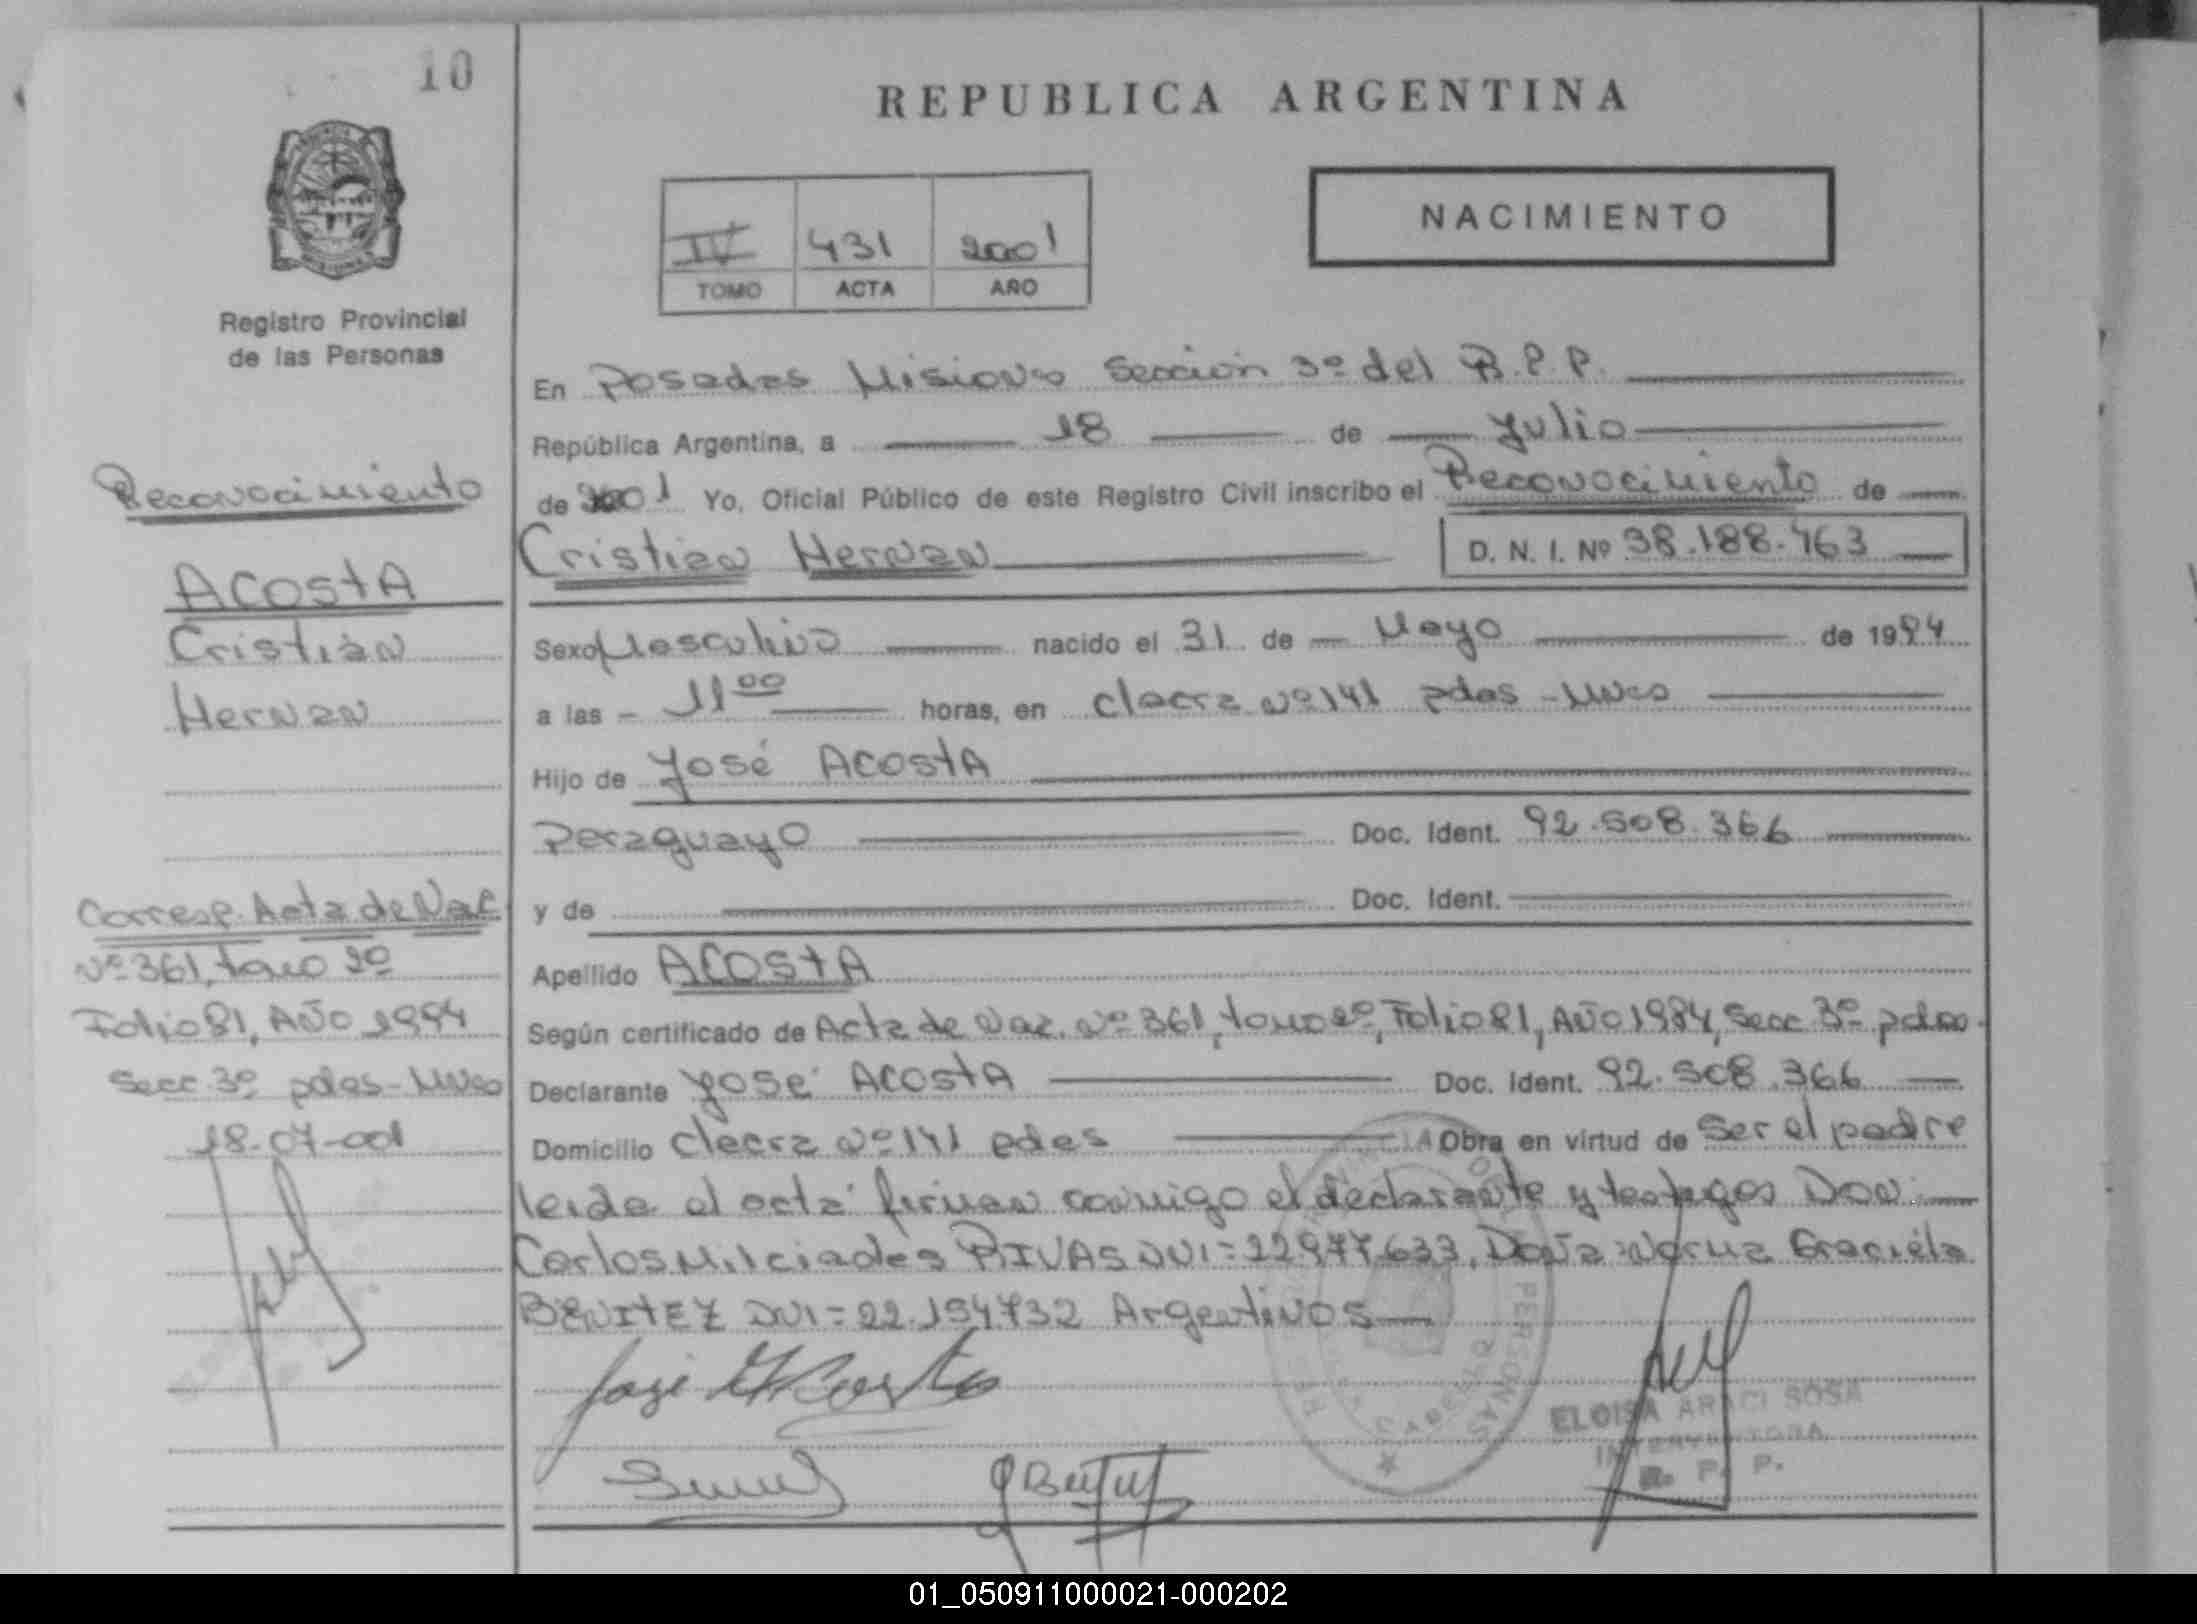 10
Registro Provincial
de las Personas
Reconocimiento
ACOSTA
Cristian
Hernan
Corresp. Acta de Nac
Nº 361, tomo 2º
Folio 81, Año 1994
Secc. 3º pdas - Mnes
18-07-001
REPUBLICA ARGENTINA
IV 431 2001
TOMO ACTA AÑO
NACIMIENTO
En Posadas Misiones Sección 3º del R.P.P.
República Argentina, a 18 de Julio
de 2001 Yo, Oficial Público de este Registro Civil inscribo el Reconocimiento de
Cristian Hernan D. N. I. Nº 38.188.463
Sexo Masculino nacido el 31 de Mayo de 1994
a las 11 00 horas, en chacra nº 141 pdas - Mnes
Hijo de José ACOSTA
Paraguayo Doc. Ident. 92.508.366
y de Doc. Ident.
Apellido ACOSTA
Según certificado de Acta de Nac. Nº 361, tomo 2º, Folio 81, Año 1994, Secc. 3º pdas.
Declarante José ACOSTA Doc. Ident. 92.508.366
Domicilio chacra Nº 141 pdas Obra en virtud de Ser el padre
leida el acta firman conmigo el declarante y testigos Don
Carlos Milciades RIVAS DNI = 22977.633, Doña Norma Graciela
BENITEZ DNI = 22.154732 Argentinos
José Acosta
PERSONAS
ELOISA ARACI SOSA
INTERVENTORA
R. P. P.
01_050911000021-000202